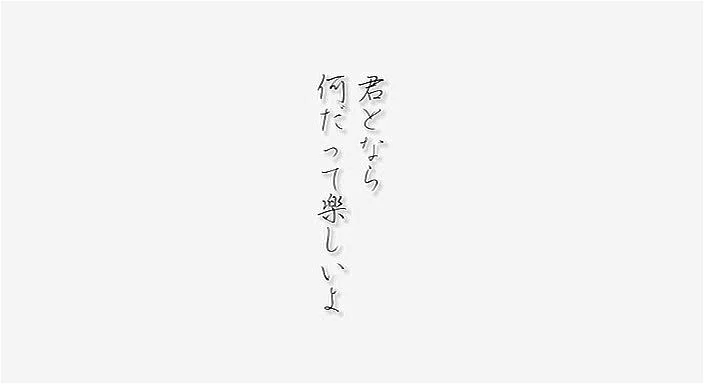 君となら
何だって楽しいよ